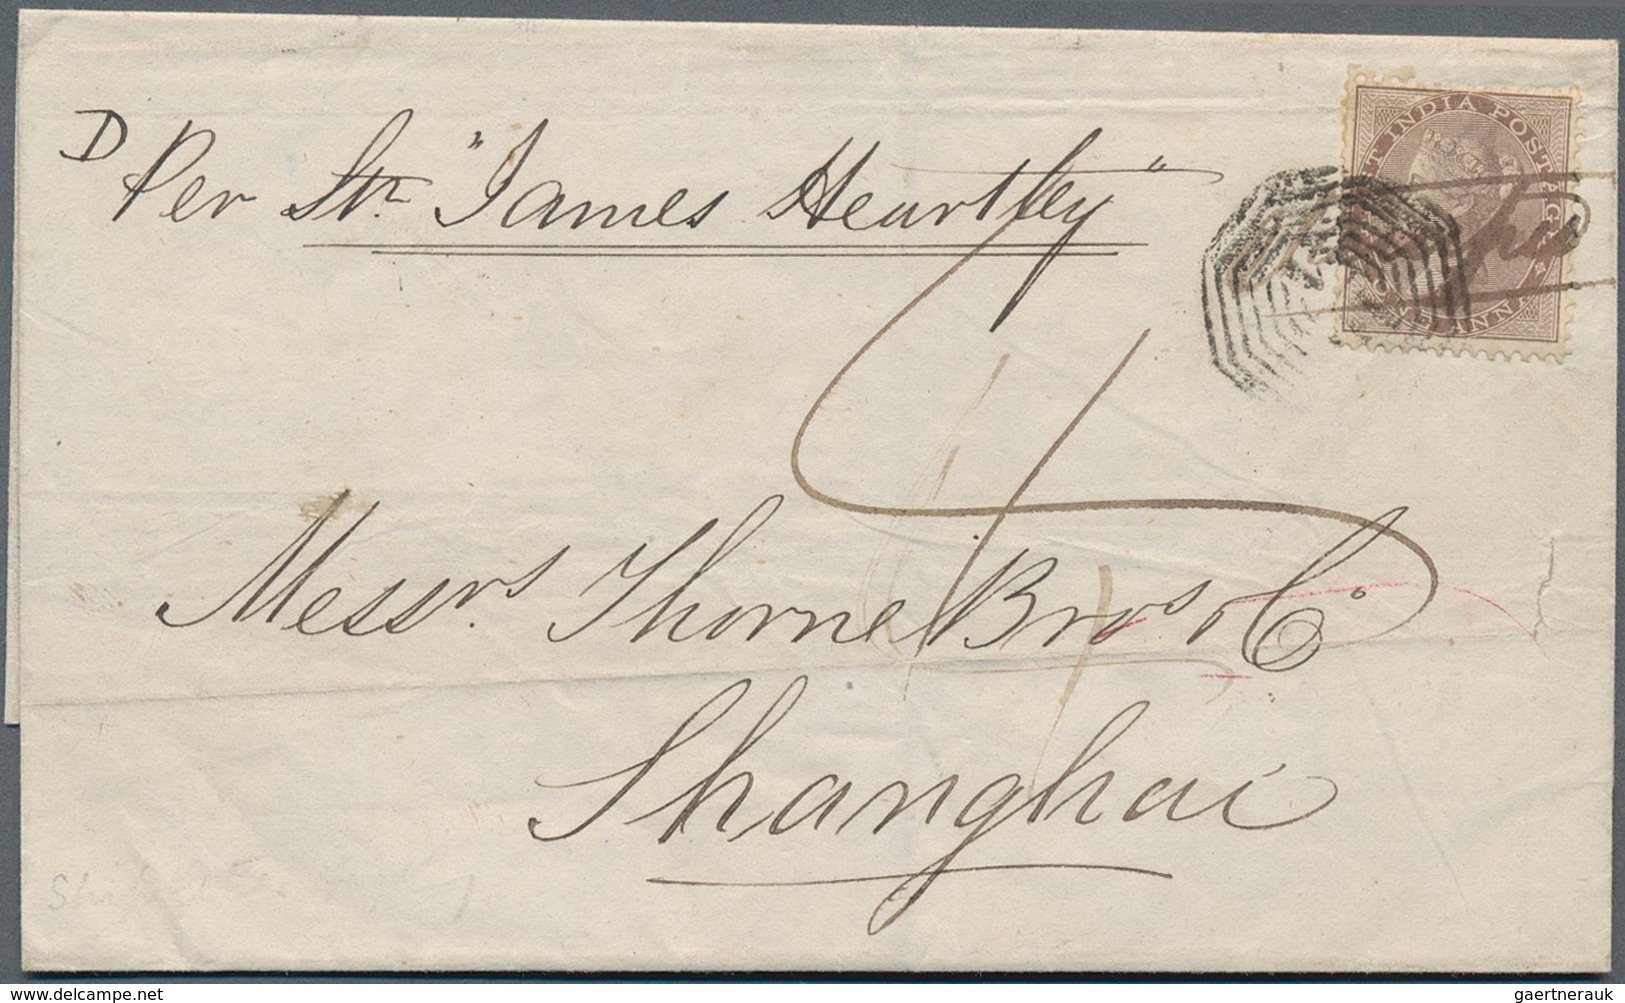 D
Per Str "James Heartley"
EAST INDIA POSTAGE
ONE ANNA
4
Messrs. Thorne Bros & Co
Shanghai
delcampe.net
gaertnerauk